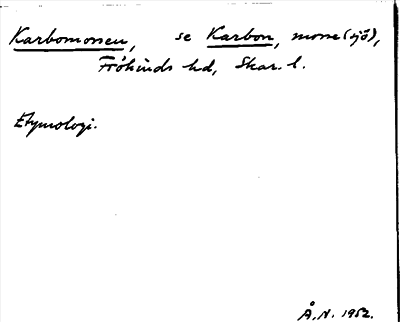 Karbomossen, se Karbon, mosse (sjö),
Frökinds hd, Skar. l.
Etymologi.
Å.N. 1952.